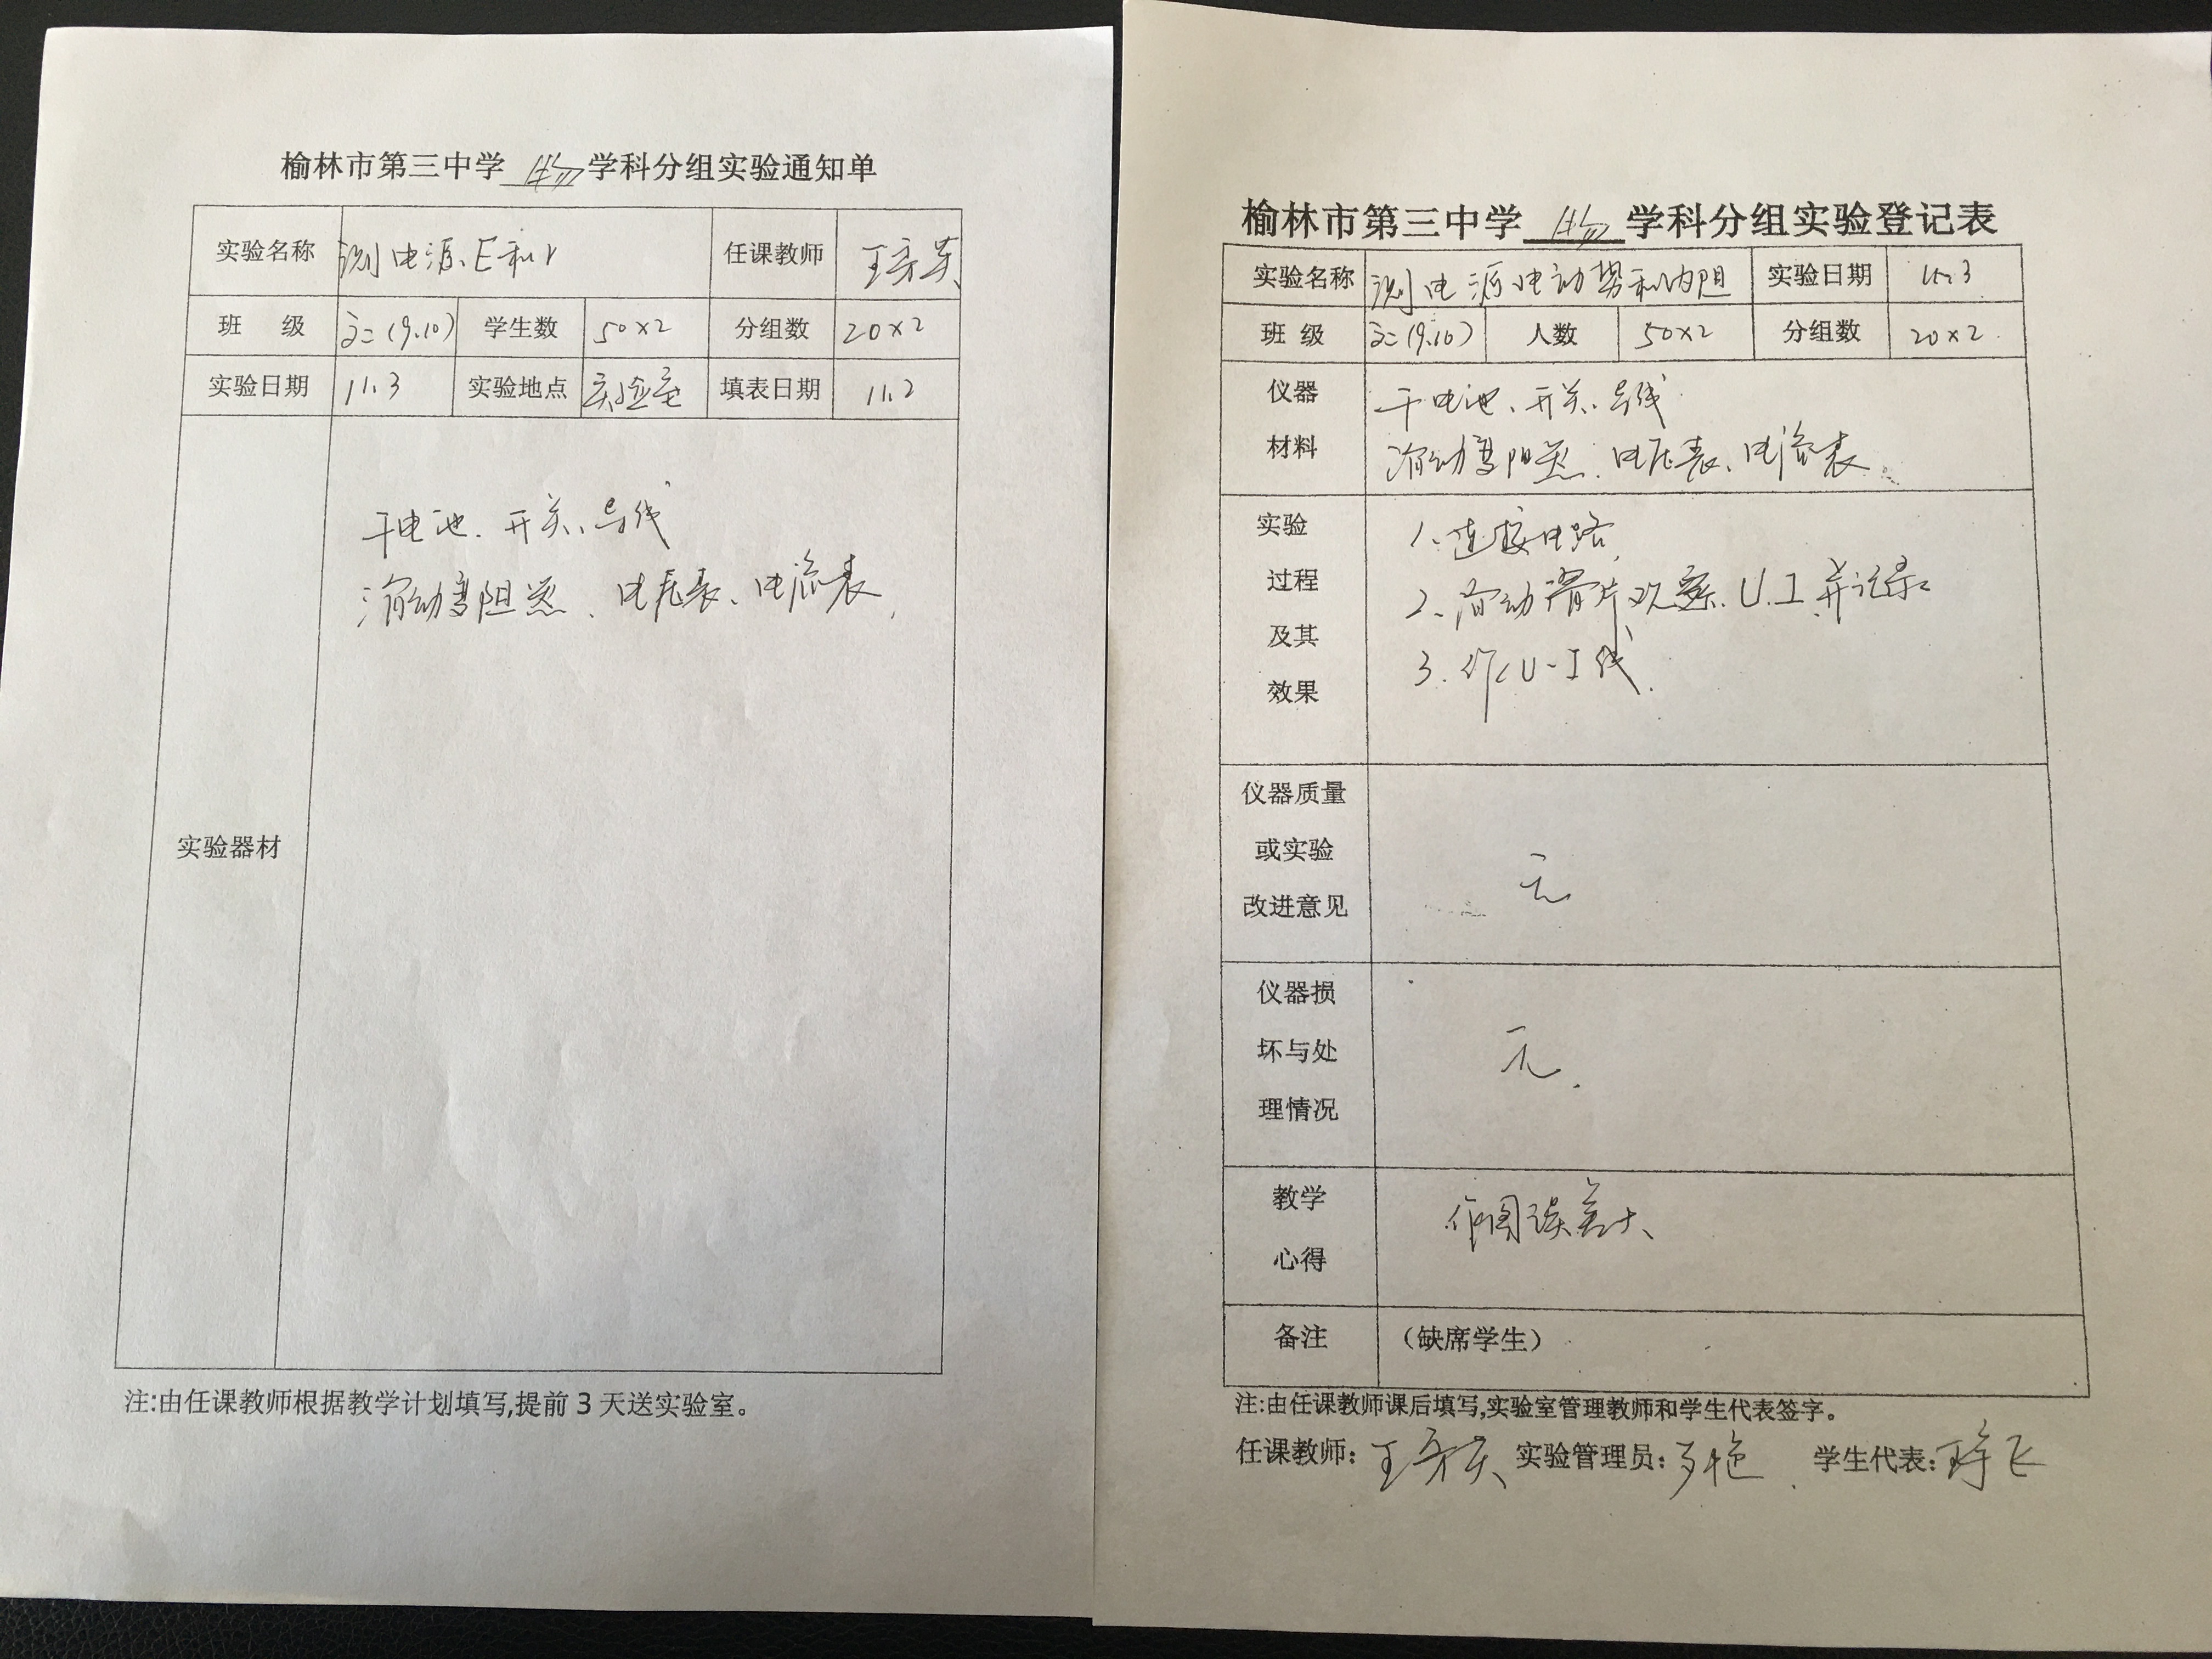 榆林市第三中学 物 学科分组实验通知单
实验名称 测电源E和r 任课教师
班 级 高二(9.10) 学生数 50×2 分组数 20×2
实验日期 11.3 实验地点 实验室 填表日期 11.2
实验器材
干电池、开关、导线
滑动变阻器、电压表、电流表
注:由任课教师根据教学计划填写,提前3天送实验室。
榆林市第三中学 物 学科分组实验登记表
实验名称 测电源电动势和内阻 实验日期 11.3
班 级 高二(9.10) 人数 50×2 分组数 20×2
仪器
材料
干电池、开关、导线
滑动变阻器、电压表、电流表
实验
过程
及其
效果
1、连接电路
2、滑动滑片观察U、I并记录
3、作U-I线.
仪器质量
或实验
改进意见
无
仪器损
坏与处
理情况
无.
教学
心得
作图误差大
备注 (缺席学生)
注:由任课教师课后填写,实验室管理教师和学生代表签字。
任课教师: 实验管理员: 学生代表: